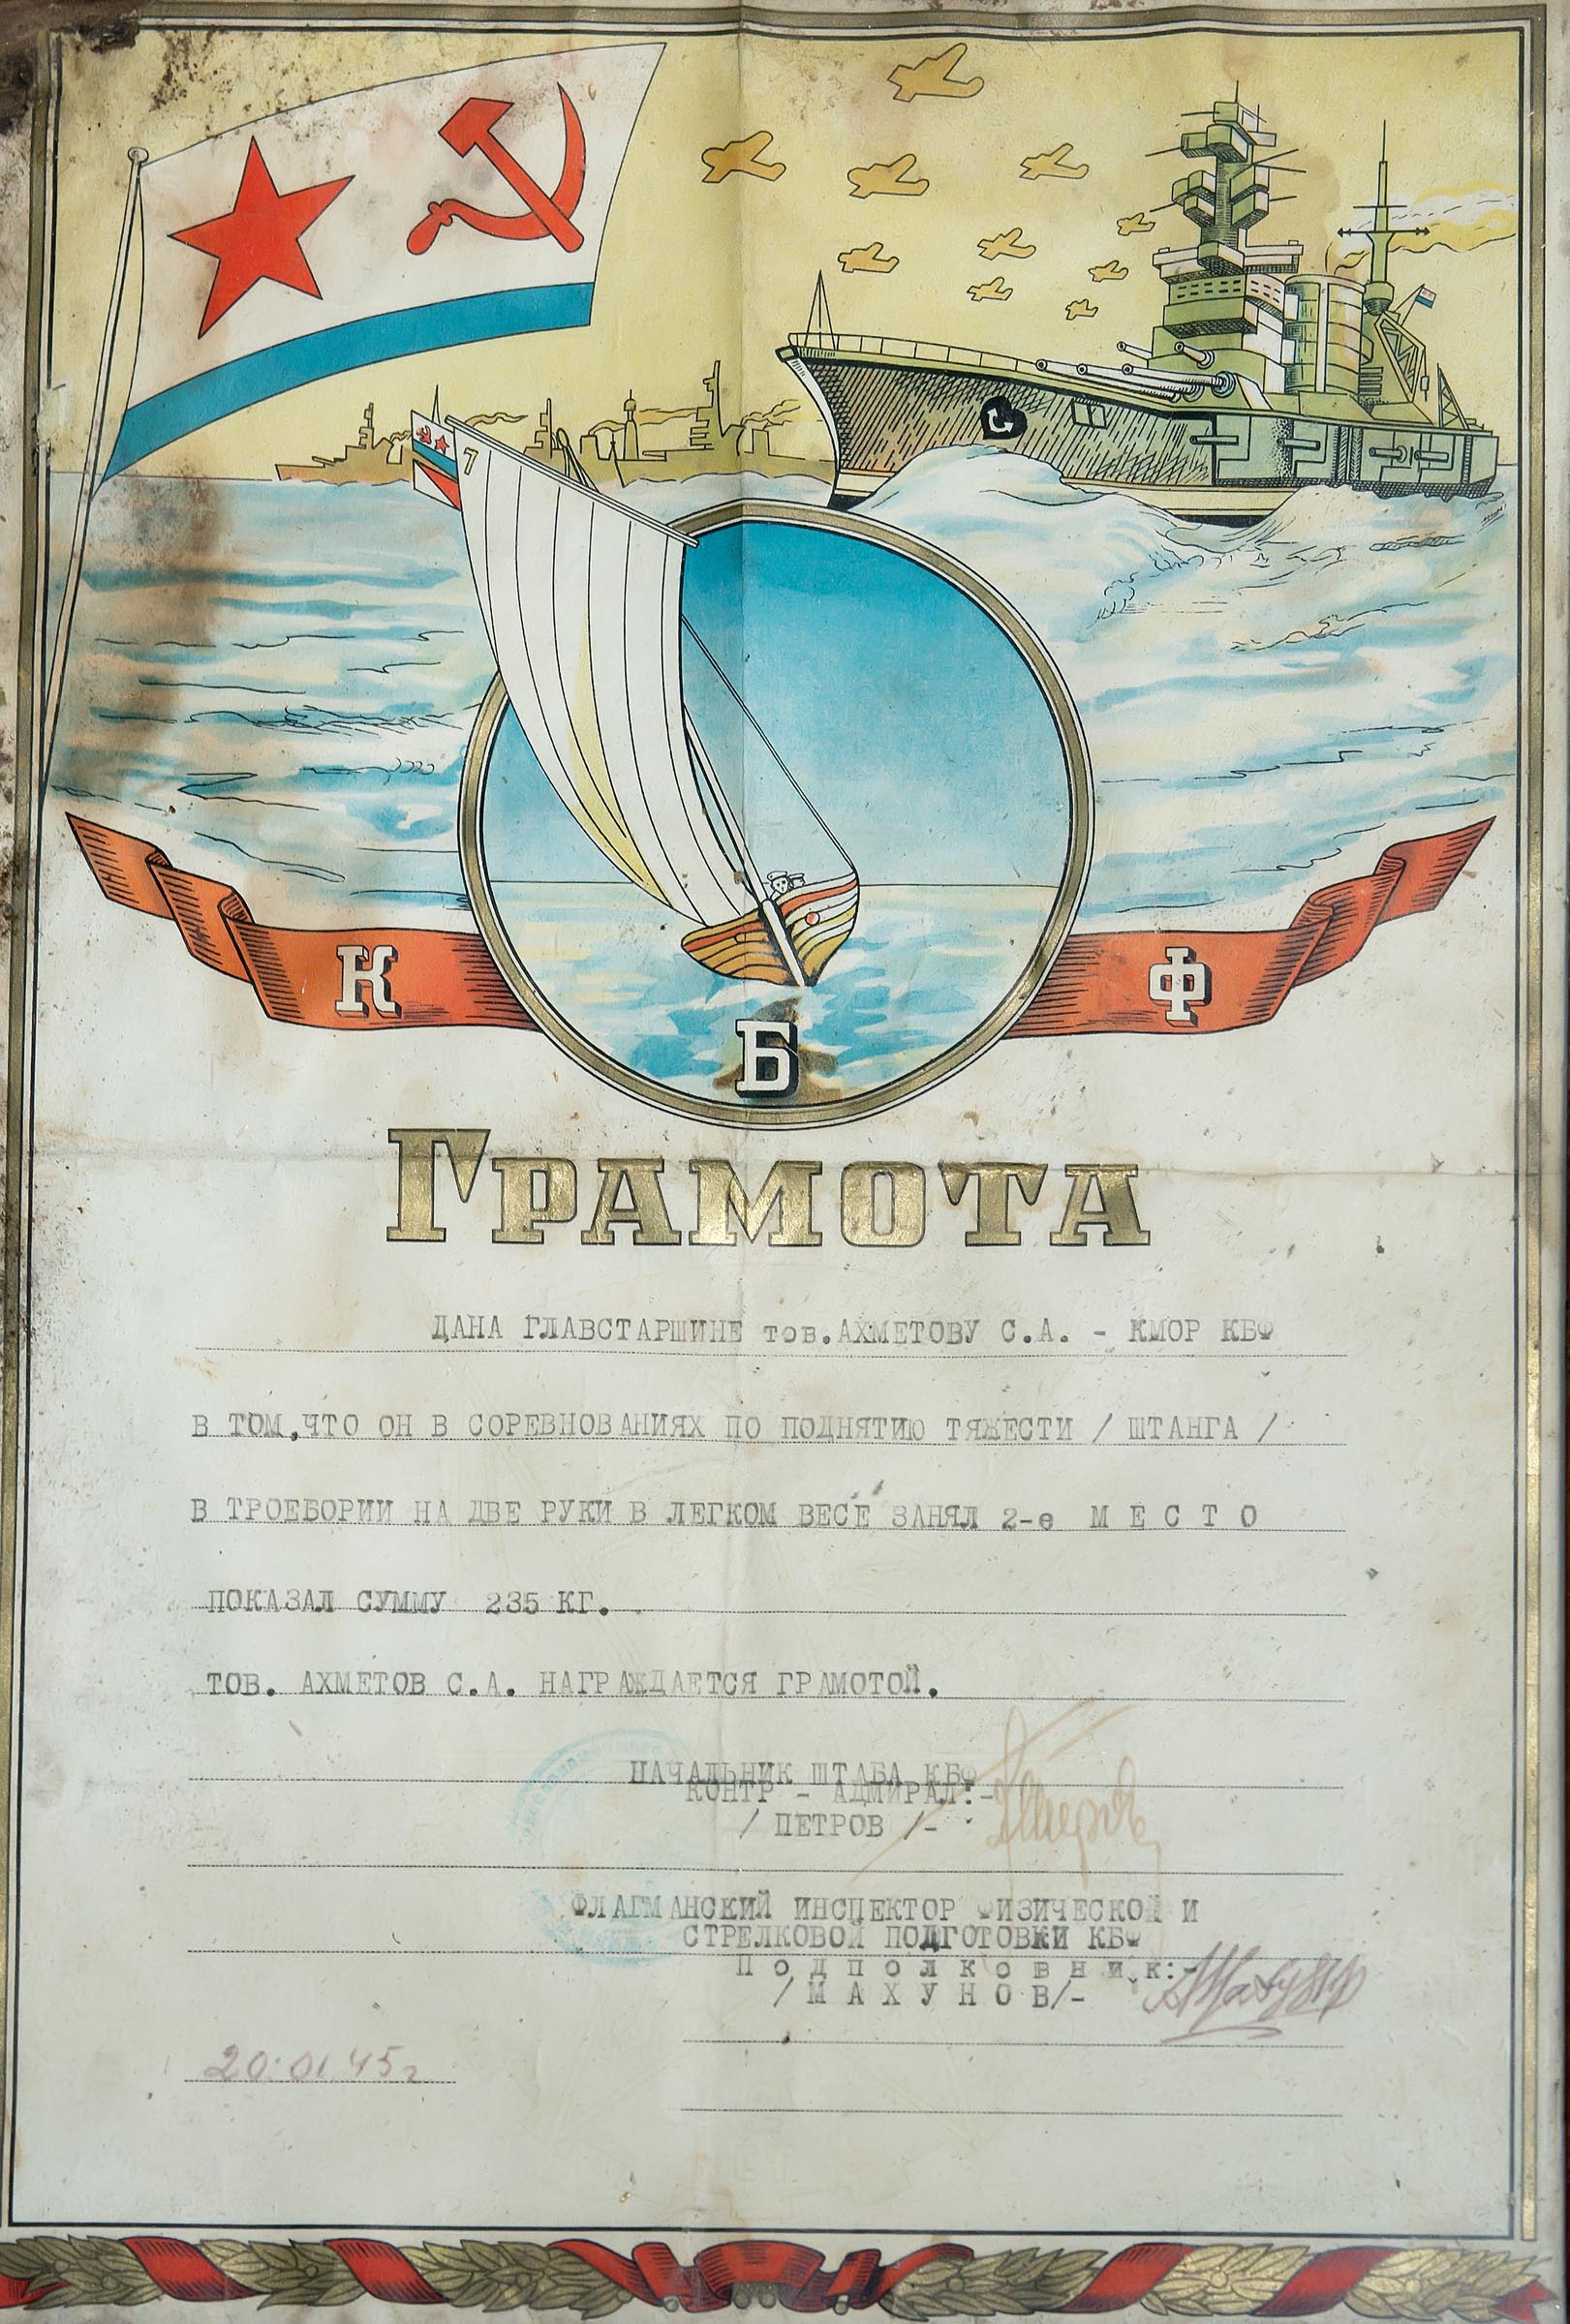 7
К
Ф
Б
ГРАМОТА
ДАНА ГЛАВСТАРШИНЕ тов.АХМЕТОВУ С.А. - КМОР КБФ
В ТОМ,ЧТО ОН В СОРЕВНОВАНИЯХ ПО ПОДНЯТИЮ ТЯЖЕСТИ / ШТАНГА /
В ТРОЕБОРИИ НА ДВЕ РУКИ В ЛЕГКОМ ВЕСЕ ЗАНЯЛ 2-е М Е С Т О
ПОКАЗАЛ СУММУ 235 КГ.
ТОВ. АХМЕТОВ С.А. НАГРАЖДАЕТСЯ ГРАМОТОЙ.
НАЧАЛЬНИК ШТАБА КБФ
КОНТР - АДМИРАЛ:-
/ ПЕТРОВ /-
ФЛАГМАНСКИЙ ИНСПЕКТОР ФИЗИЧЕСКОЙ И
СТРЕЛКОВОЙ ПОДГОТОВКИ КБФ
П о д п о л к о в н и к:-
/ М А Х У Н О В/-
20.01.45г